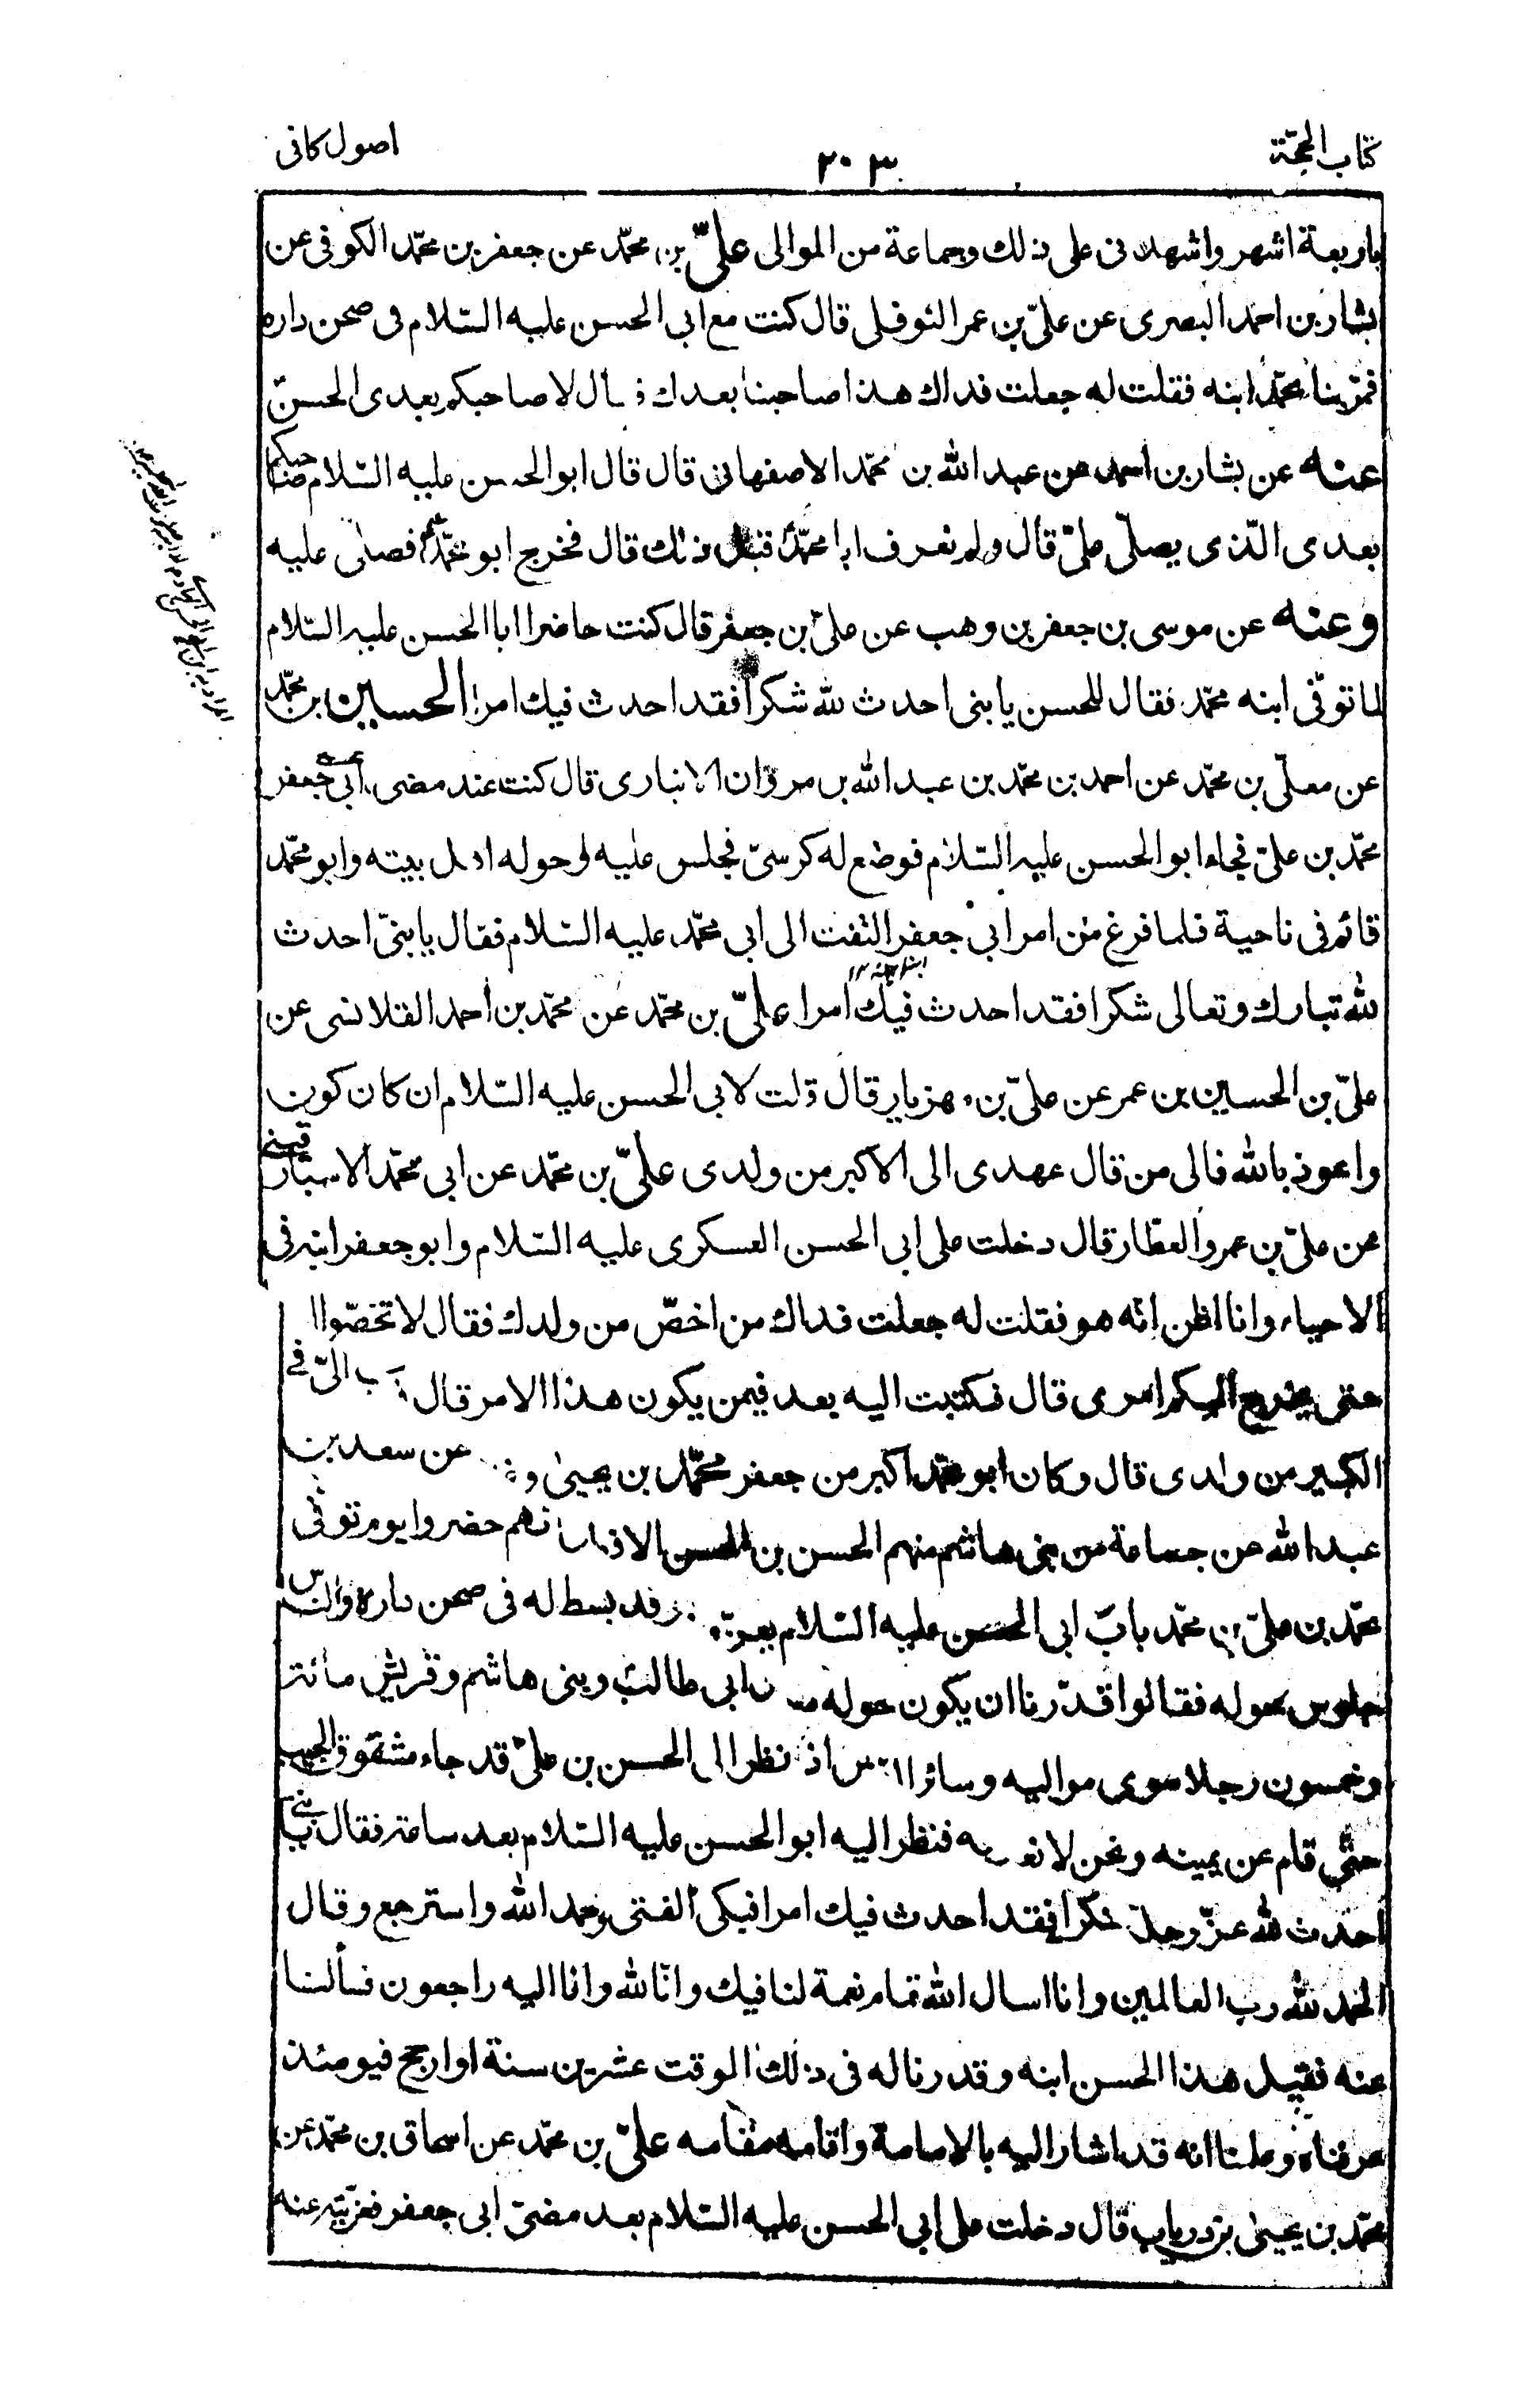 كتاب الحجّة
٢٠٣
اصول كافى
باربعة اشهر واشهدنى على ذلك وجماعة من الموالى علىّ بن محمّد عن جعفر بن محمّد الكوفى عن
بشار بن احمد البصرى عن علىّ بن عمر النوفلى قال كنت مع ابى الحسن عليه السّلام فى صحن داره
فمرّ بنا محمّد ابنه فقلت له جعلت فداك هذا صاحبنا بعدك فقال لا صاحبكم بعدى الحسنّ
عنه عن بشار بن احمد عن عبد الله بن محمّد الاصفهانى قال قال ابو الحسن عليه السّلام صاحبكم
بعدى الّذى يصلّى علىّ قال ولم نعرف ابا محمّد قبل ذلك قال فخرج ابو محمّد فصلى عليه
وعنه عن موسى بن جعفر بن وهب عن علىّ بن جعفر قال كنت حاضرا ابا الحسن عليه السّلام
لما توفّى ابنه محمّد فقال للحسن يا بنى احدث لله شكرا فقد احدث فيك امرا الحسين بن محمّد
عن معلّى بن محمّد عن احمد بن محمّد بن عبد الله بن مروان الانبارى قال كنت عند مضى ابى جعفر
محمّد بن علىّ فجاء ابو الحسن عليه السّلام فوضع له كرسىّ فجلس عليه وحوله اهل بيته وابو محمّد
قائم فى ناحية فلما فرغ من امر ابى جعفر التفت الى ابى محمّد عليه السّلام فقال يا بنىّ احدث
لله تبارك وتعالى شكرا فقد احدث فيك امرا علىّ بن محمّد عن محمّد بن احمد القلانسى عن
علىّ بن الحسين بن عمر عن علىّ بن مهزيار قال قلت لابى الحسن عليه السّلام ان كان كون
واعوذ بالله فالى من قال عهدى الى الاكبر من ولدى علىّ بن محمّد عن ابى محمّد الاسبارقينى
عن علىّ بن عمرو العطّار قال دخلت على ابى الحسن العسكرى عليه السّلام وابو جعفر ابنه فى
الاحياء وانا اظن انّه هو فقلت له جعلت فداك من اخصّ من ولدك فقال لا تخصّوا ا
حتى يخرج اليكم امرى قال فكتبت اليه بعد فيمن يكون هذا الامر قال فكتب الىّ فى
الكبير من ولدى قال وكان ابو محمّد اكبر من جعفر محمّد بن يحيىٰ و عن سعد بن
عبد الله عن جماعة من بنى هاشم منهم الحسن بن الحسن الافطس انهم حضروا يوم توفّى
محمّد بن علىّ بن محمّد باب ابى الحسن عليه السّلام يعزّونه وقد بسط له فى صحن داره والنّاس
جلوس حوله فقالوا قدّرنا ان يكون حوله من ال ابى طالب وبنى هاشم وقريش مائة
وخمسون رجلا سوى مواليه وسائر النّاس اذ نظر الى الحسن بن علىّ قد جاء مشقوق الجيب
حتّى قام عن يمينه ونحن لا نعرفه فنظر اليه ابو الحسن عليه السّلام بعد ساعة فقال يا بنى
احدث لله عزّ وجلّ شكرا فقد احدث فيك امرا فبكى الفتى وحمد الله واسترجع وقال
الحمد لله رب العالمين وانا اسال الله تمام نعمة لنا فيك وانّا لله وانا اليه راجعون فسألنا
عنه فقيل هذا الحسن ابنه وقدرنا له فى ذلك الوقت عشرين سنة او ارجح فيومئذ
عرفناه وعلمنا انه قد اشار اليه بالامامة واقامه مقامه علىّ بن محمّد عن اسحاق بن محمّد عن
محمّد بن يحيىٰ بن درياب قال دخلت على ابى الحسن عليه السّلام بعد مضىّ ابى جعفر فعزّيته عنه